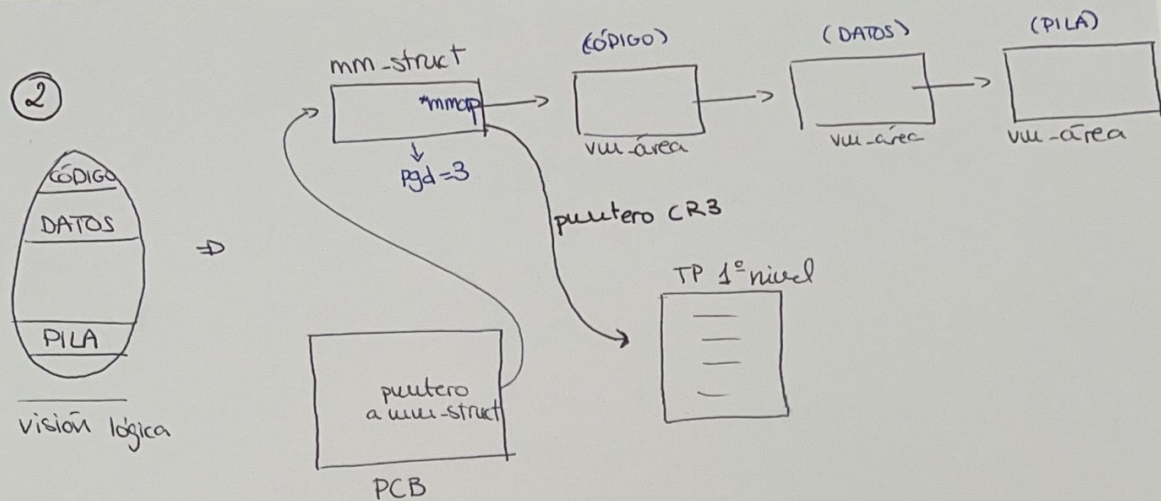 2
CÓDIGO
DATOS
PILA
visión lógica
mm_struct
*mmap
pgd=3
(CÓDIGO)
vm_área
(DATOS)
vm_área
(PILA)
vm_área
puntero CR3
TP 1º nivel
puntero
a mm_struct
PCB